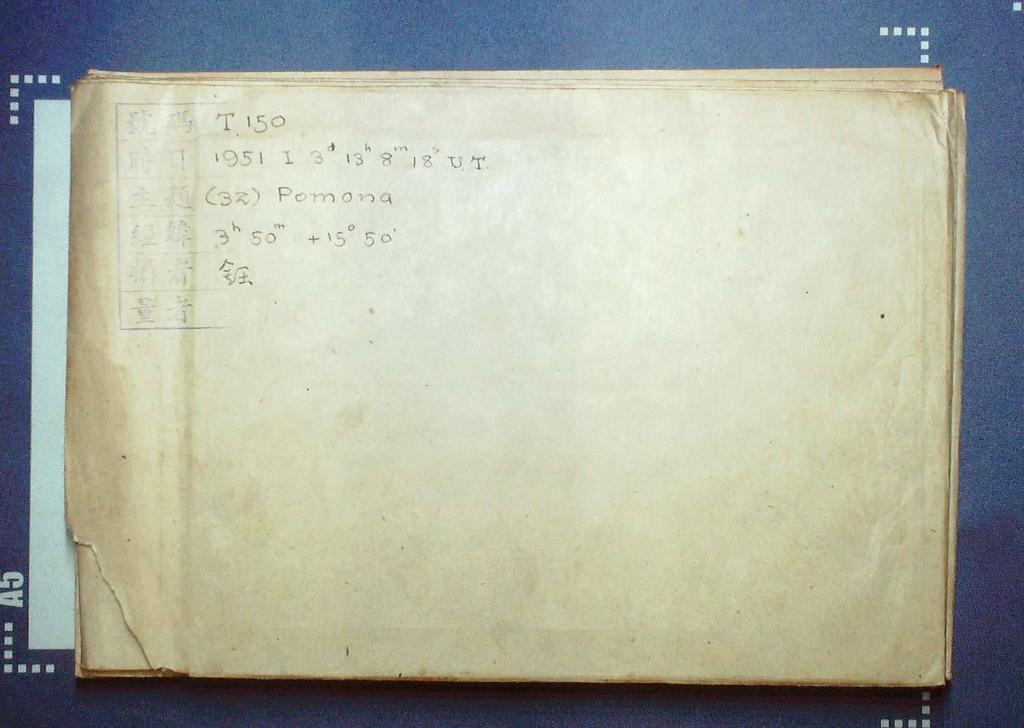 號碼 T.150
時日 1951 I 3ᵈ 13ʰ 8ᵐ 18ˢ U.T.
主題 (32) Pomona
經緯 3ʰ 50ᵐ +15° 50'
者 鈺
量者
A5